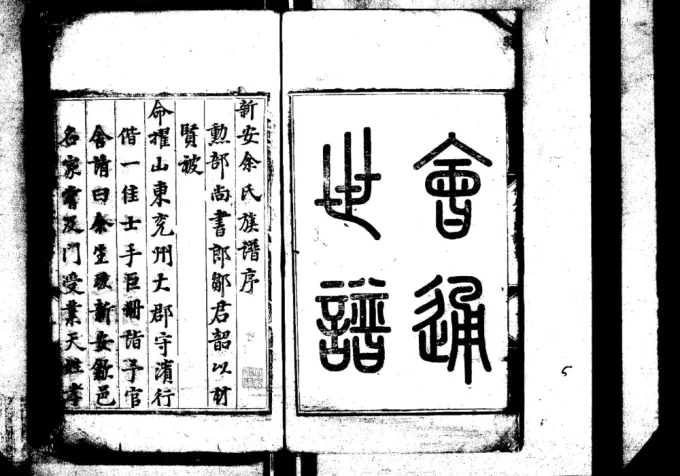 會通
世譜
新安余氏族譜序
勲部尚書郎鄒君韶以材
賢被
命擢山東兖州大郡守濱行
偕一佳士手巨冊詣予官
舍請曰余生
新安歙邑
名家嘗及門受業天性孝
5